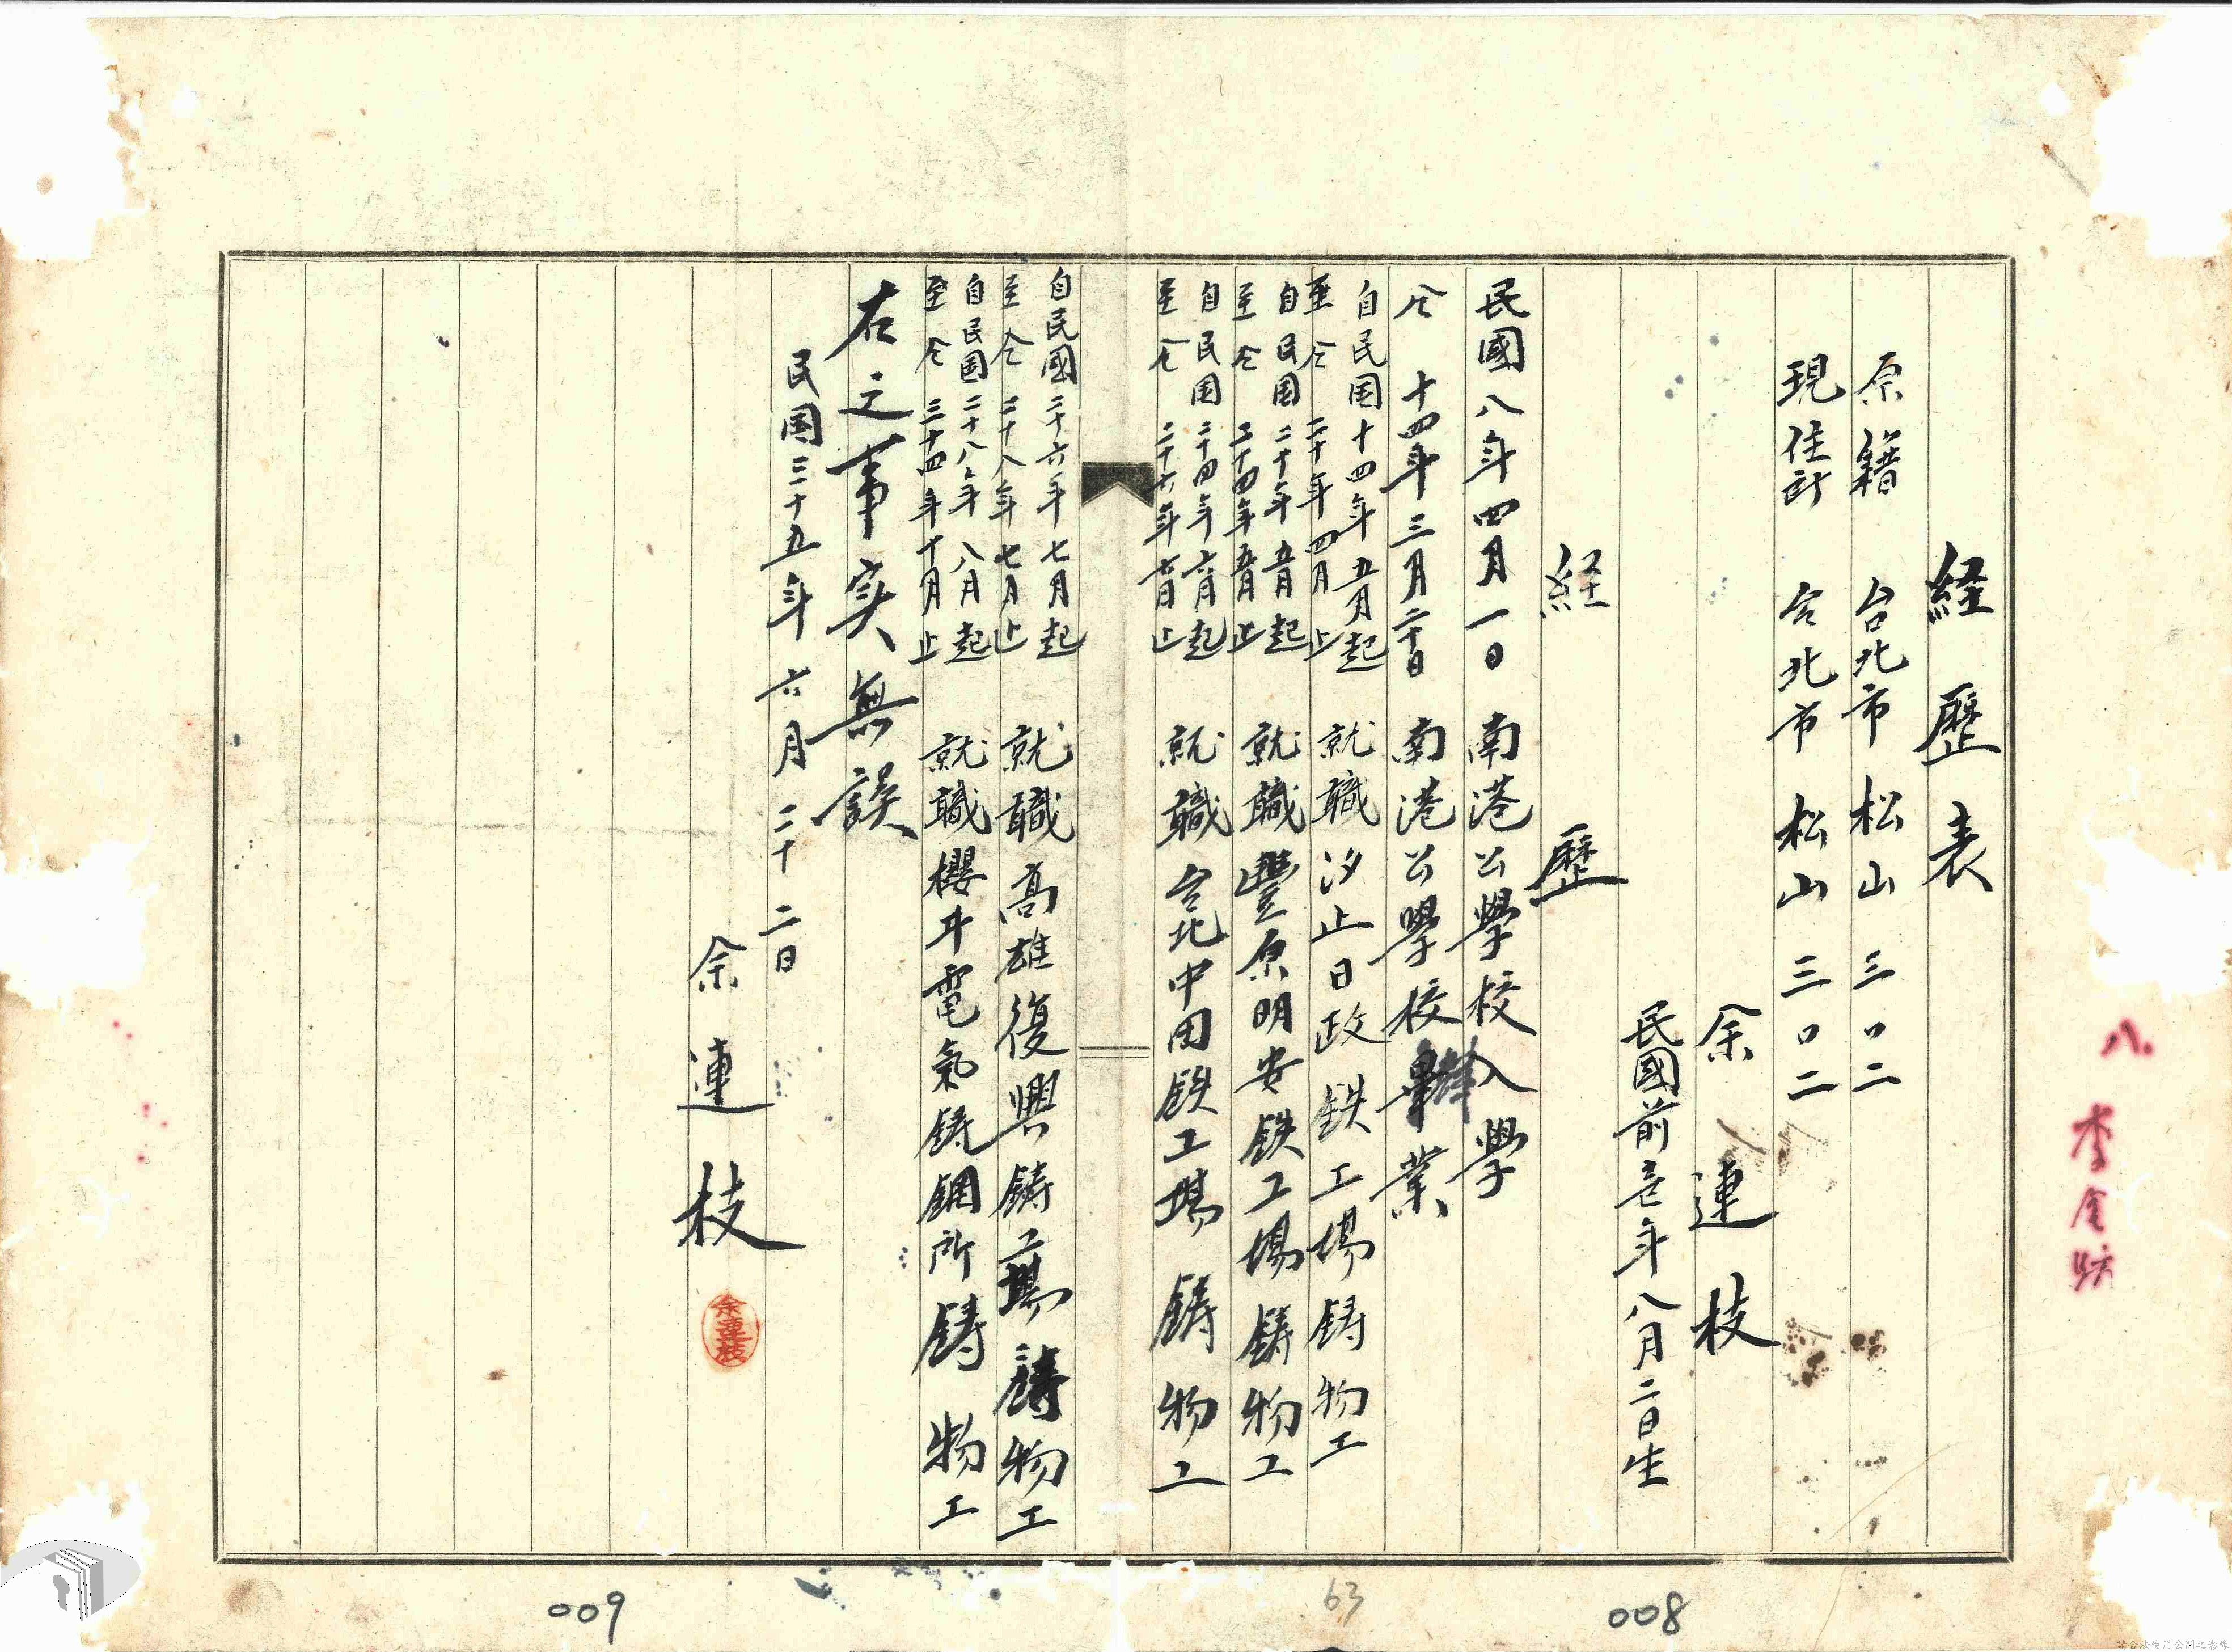 経歴表
原籍 台北市松山三〇二
現住所 台北市松山三〇二
余連枝
民國前壱年八月二日生
経歴
民國八年四月一日 南港公學校入學
仝 十四年三月二十日 南港公學校畢業
自民国十四年五月起
至仝二十年四月止
就職汐止日政鉄工場鋳物工
自民国二十年五月起
至仝二十四年五月止
就職豐原明安鉄工場鋳物工
自民国二十四年六月起
至仝二十六年七月止
就職台北中田鉄工場鋳物工
自民國二十六年七月起
至仝二十八年七月止
就職高雄復興鋳工場鋳物工
自民国二十八年八月起
至仝三十四年十月止
就職櫻井電氣鋳鋼所鋳物工
右之事実無誤
民国三十五年六月二十二日
余連枝
余連枝
八.李金
009
63
008